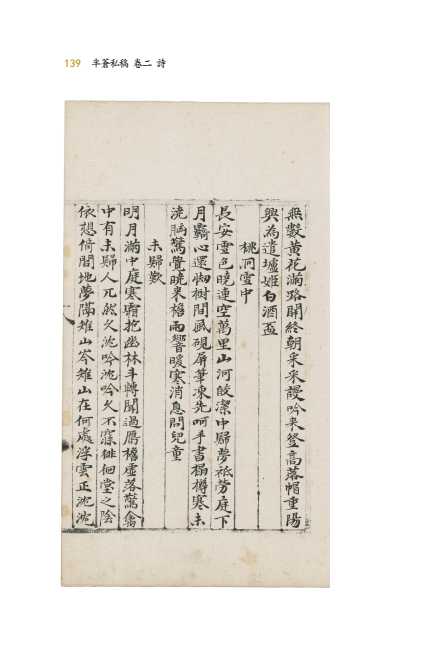 139 半蒼私稿 卷二 詩
無數黃花滿路開終朝采采謾吟來登高落帽重陽
興爲遣壚姬白酒盃
桃洞雪中
長安雪色曉連空萬里山河皎潔中歸夢祗勞庭下
月覊心還惱樹間風硯屏筆凍先呵手書榻樽寒未
澆胸驚覺曉來檐雨響暖寒消息問兒童
未歸歎
明月滿中庭寒窓抱幽林斗轉聞過鴈檐虛落驚禽
中有未歸人兀然久沈吟沈吟久不寐徘徊堂之陰
依想倚閭地夢隔雉山岑雉山在何處浮雲正沈沈